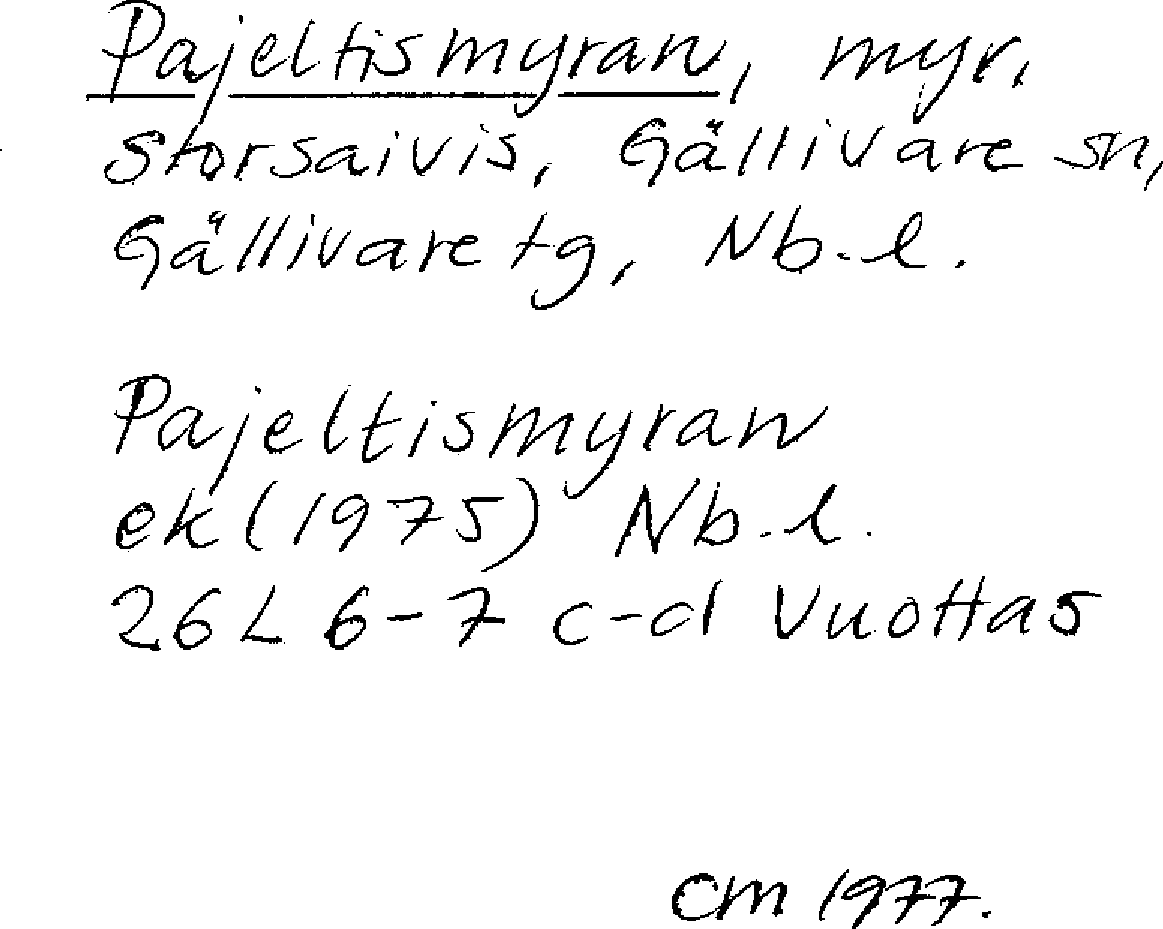 Pajeltismyran, myr,
Storsaivis, Gällivare sn,
Gällivare tg, Nb.l.
Pajeltismyran
ek (1975) Nb.l.
26L 6-7 c-d Vuottas
CM 1977.